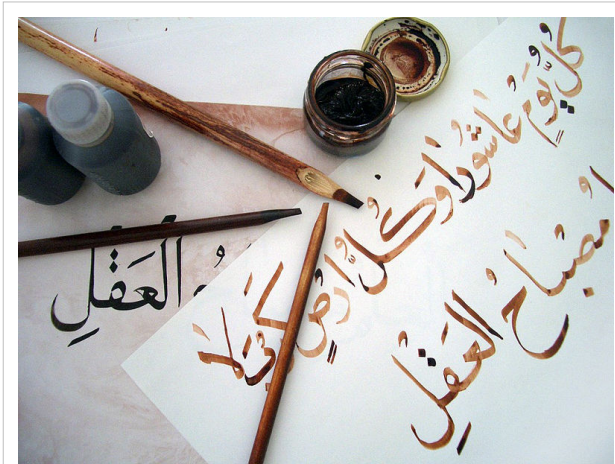 كُلُّ يَوْمٍ عَاشُورَا وَكُلُّ أَرْضٍ كَربَلا
مِصْبَاحُ العَقْلِ
العَقْلِ